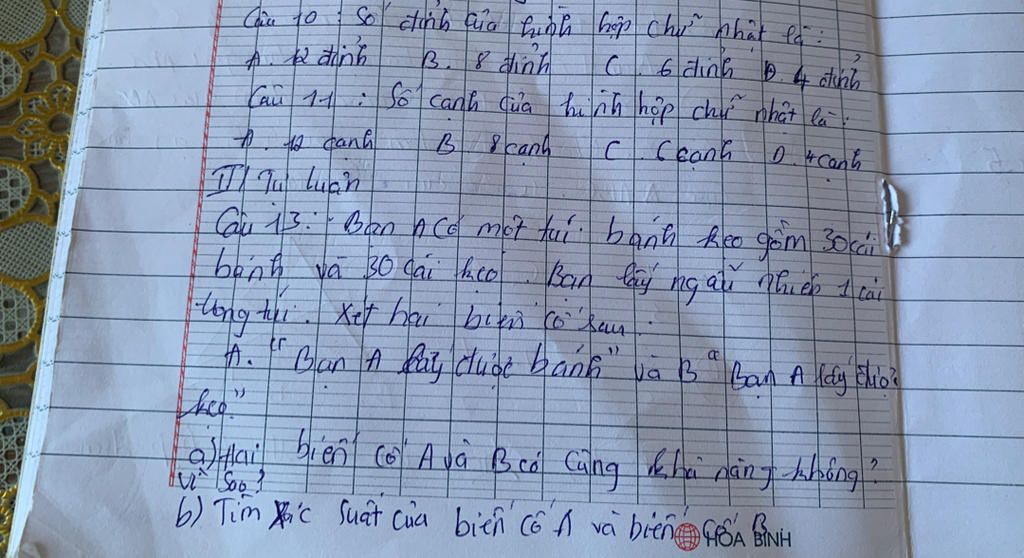 Câu 10 : Số đỉnh của hình hộp chữ nhật là :
A. 12 đỉnh B. 8 đỉnh C. 6 đỉnh D 4 đỉnh
Câu 11 : Số cạnh của hình hộp chữ nhật là :
A. 12 cạnh B 8 cạnh C. 6 cạnh D. 4 cạnh
II/ Tự luận
Câu 13: Bạn A có một túi bánh kẹo gồm 30 cái
bánh và 30 cái kẹo. Bạn lấy ngẫu nhiên 1 cái
trong túi. Xét hai biến cố sau :
A. "Bạn A lấy được bánh" và B "Bạn A lấy được
kẹo"
a) Hai biến cố A và B có cùng khả năng không?
vì sao?
b) Tìm xác suất của biến cố A và biến cố B
HÒA BÌNH